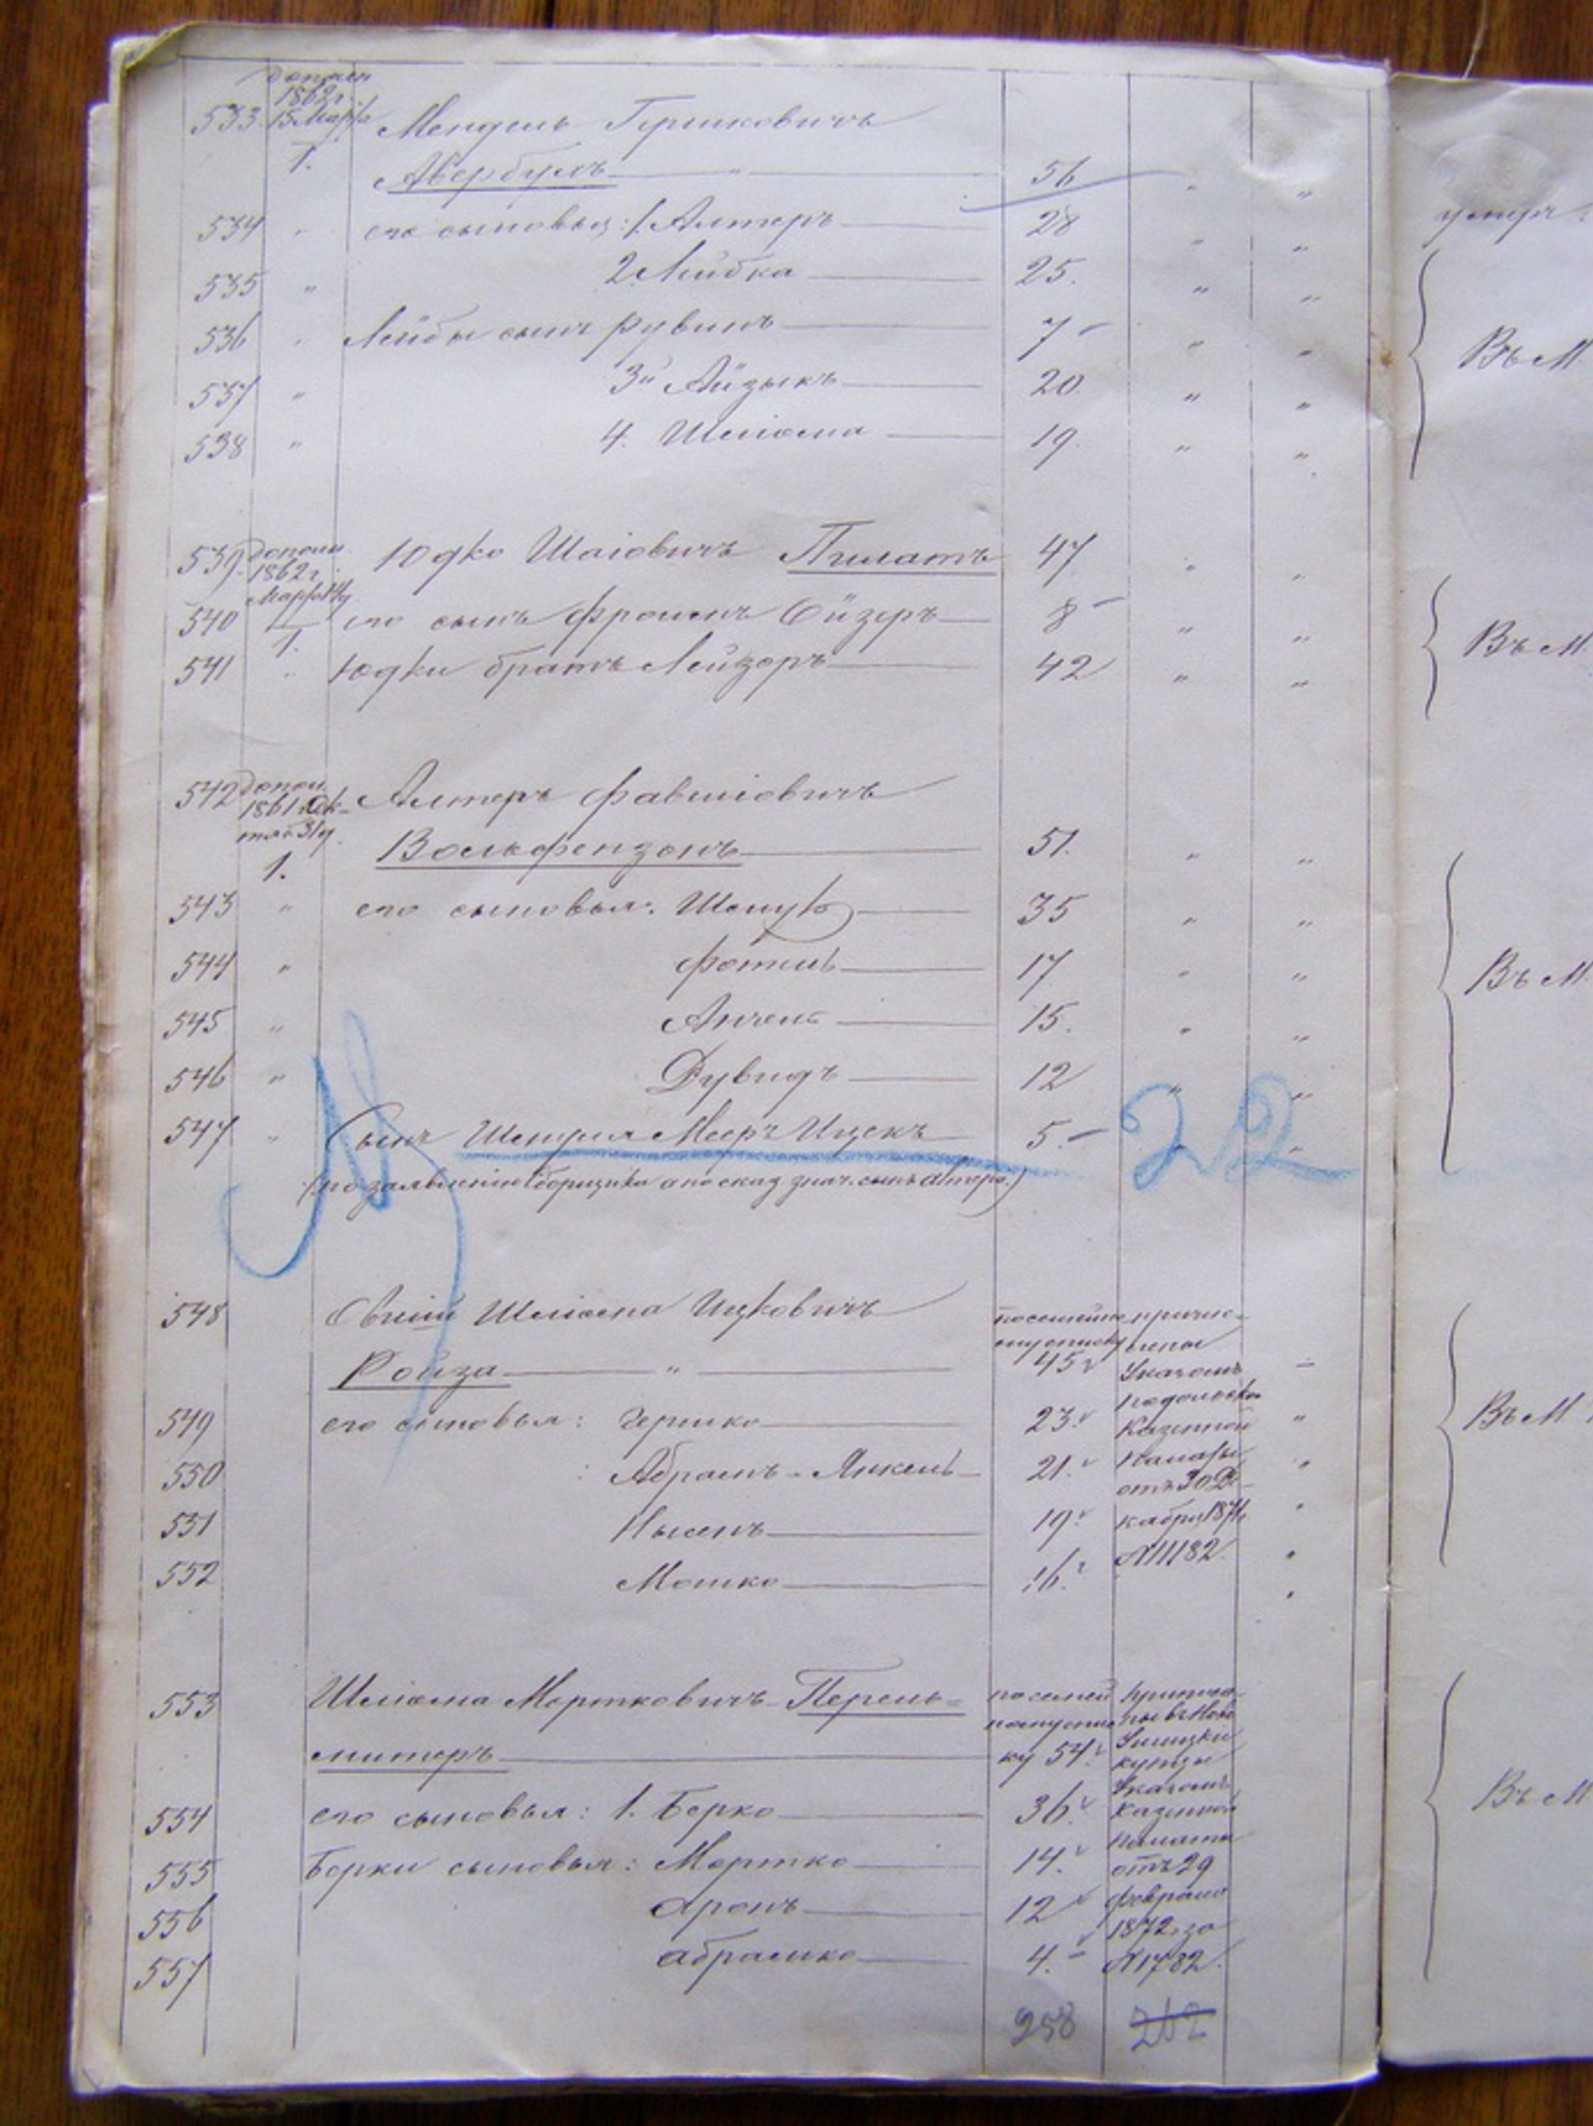 допол
1862 г.
533. 15 Марта Мендель Гершковичъ
1. Авербухъ " 56 " "
534 " его сыновья: 1 Алтеръ 28 " "
535 " 2 Лейбка 25. " "
536 " Лейбы сынъ Рувинъ 7 " "
537 " 3й Айзыкъ 20 " "
538 " 4. Шлiома 19. " "
539. допол. Юдко Шаiовичъ Пилатъ 47 " "
1862 г.
Марта
540 1. его сынъ Фроимъ Ойзеръ 8 " "
541 " Юдки братъ Лейзоръ 42 " "
542 допол. Алтеръ Фавшiовичъ
1861 Ок-
тяб 31 д.
1. Вольфензонъ 51. " "
543 " его сыновья: Шмуль 35 " "
544 " Фотель 17 " "
545 " Анчель 15. " "
546 " Дувидъ 12 " "
547 " Сынъ Шмуля Мееръ Ицекъ 5. " "
22
(по заявленiю сборщика а по сказ. знач. сынъ Алтера.)
548 Овшiй Шлiома Ицковичъ посемейно причис-
му списку лены
Ройза " 45 Указомъ
Подольской
549 его сыновья: Гершко 23. Казенной "
550 : Абрамъ-Янкель 21. Палаты "
отъ 30 Де-
551 Нысенъ 19. кабря 1871 "
552 Мошко 16. N 11182. "
553 Шлiома Мортковичъ Перель= посемей причис-
ному спис лены въ Ново
митеръ ку 54. Ушицкiе
купцы
Указомъ
554 его сыновья: 1. Берко 36. Казенной
Палаты
555 Берки сыновья: Мортко 14. отъ 29
556 Аронъ 12 Февраля
1872 за
557 Абрамко 4. N 1782.
258 262
Въ М.
Въ М.
Въ М.
Въ М.
Въ М